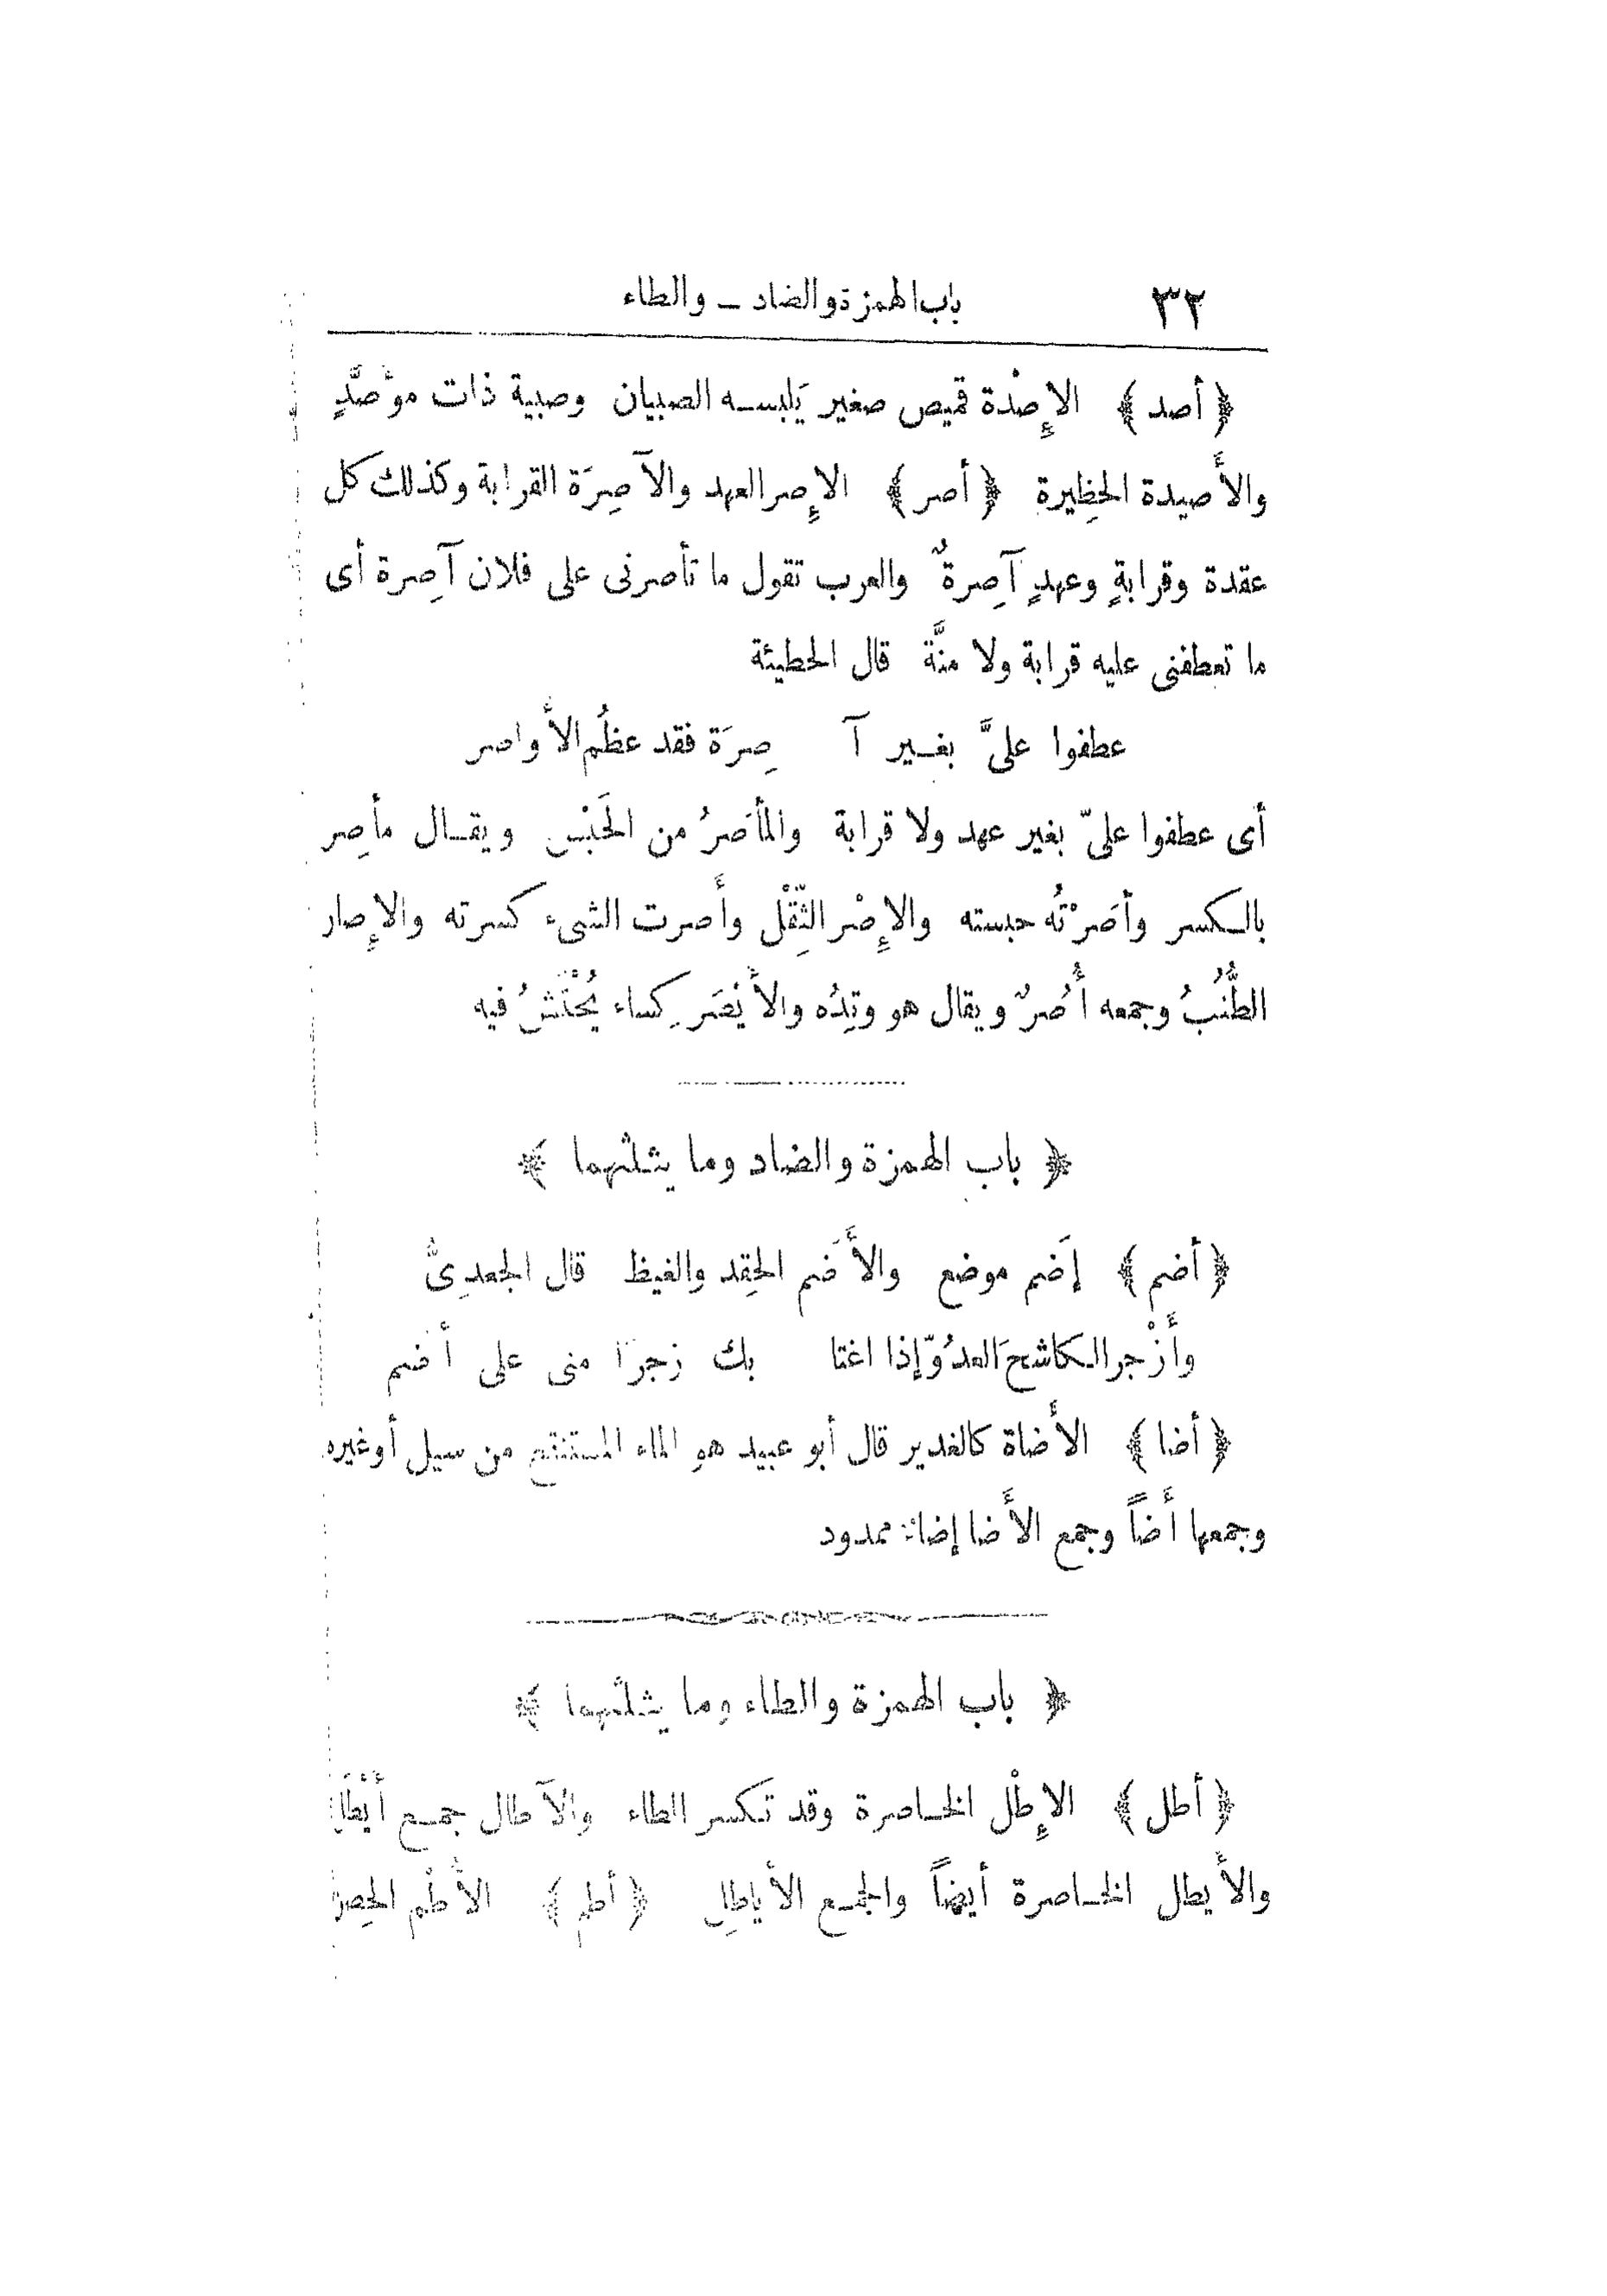 ٣٢ باب الهمزة والضاد ــ والطاء
﴿ أصد ﴾ الإِصْدة قميص صغير يَلبسـه الصبيان وصبية ذات مؤصَّدٍ
والأَصيدة الحظِيرة ﴿ أصر ﴾ الإِصر العهد والآصِرَة القرابة وكذلك كل
عقدة وقرابةٍ وعهدٍ آصِرةٌ والعرب تقول ما تأصرنى على فلان آصِرة أى
ما تعطفنى عليه قرابة ولا منَّة قال الحطيئة
عطفوا علىَّ بغـير آ صِرَة فقد عظُم الأَواصر
أى عطفوا علىّ بغير عهد ولا قرابة والمأصَرُ من الحَبْس ويقـال مأصِر
بالـكسر وأصَرْتُه حبسته والإِصْر الثِّقْل وأَصرت الشىء كسرته والإِصار
الطُّنُبُ وجمعه أُصُرٌ ويقال هو وتِدُه والأَيْصَر كِساء يُحْتَشُ فيه
﴿ باب الهمزة والضاد وما يثلثهما ﴾
﴿ أضم ﴾ إضَم موضع والأَضَم الحِقد والغيظ قال الجعدِىُّ
وأَزْجر الـكاشحَ العدُوّ إذا اغتا بك زجرًا منى على أَضم
﴿ أضا ﴾ الأَضاة كالغدير قال أبو عبيد هو الماء المستنقع من سيل أو غيره
وجمعها أَضاً وجمع الأَضا إضاء ممدود
﴿ باب الهمزة والطاء وما يثلثهما ﴾
﴿ أطل ﴾ الإِطْل الخـاصرة وقد تـكسر الطاء والآطال جمـع أَيْطَل
والأَيطل الخـاصرة أيضاً والجمـع الأياطِل ﴿ أطم ﴾ الأُطُم الحِصن